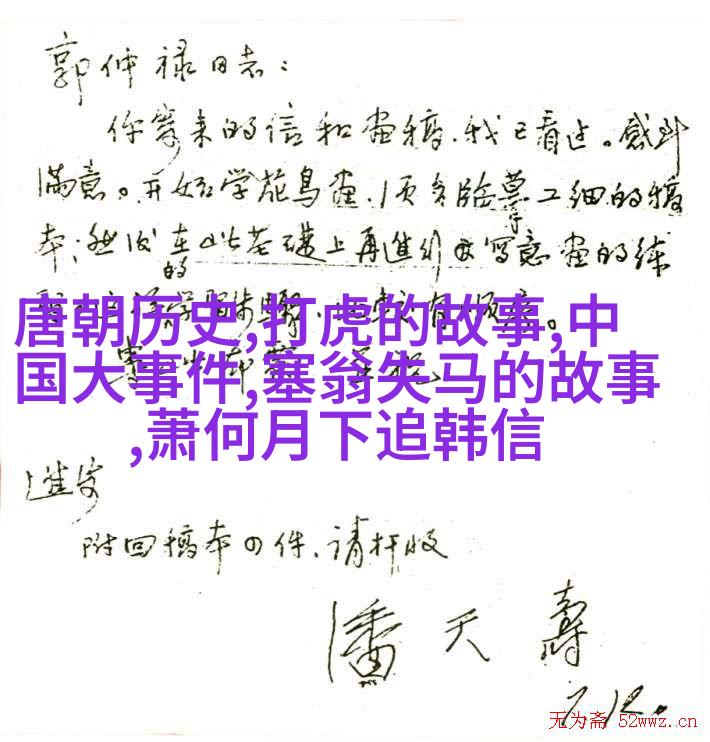 郭仲禄同志：
你寄来的信和画稿，我已看过。感到
满意。开始学花鸟画，须多临摹工细的稿
本；然后在此基础上再进行写意画的练
的
唐朝历史,打虎的故事,中
国大事件,塞翁失马的故事
,萧何月下追韩信
进安
附回稿本四件、请检收
潘天寿
7.12.
无为斋 52wwz.cn